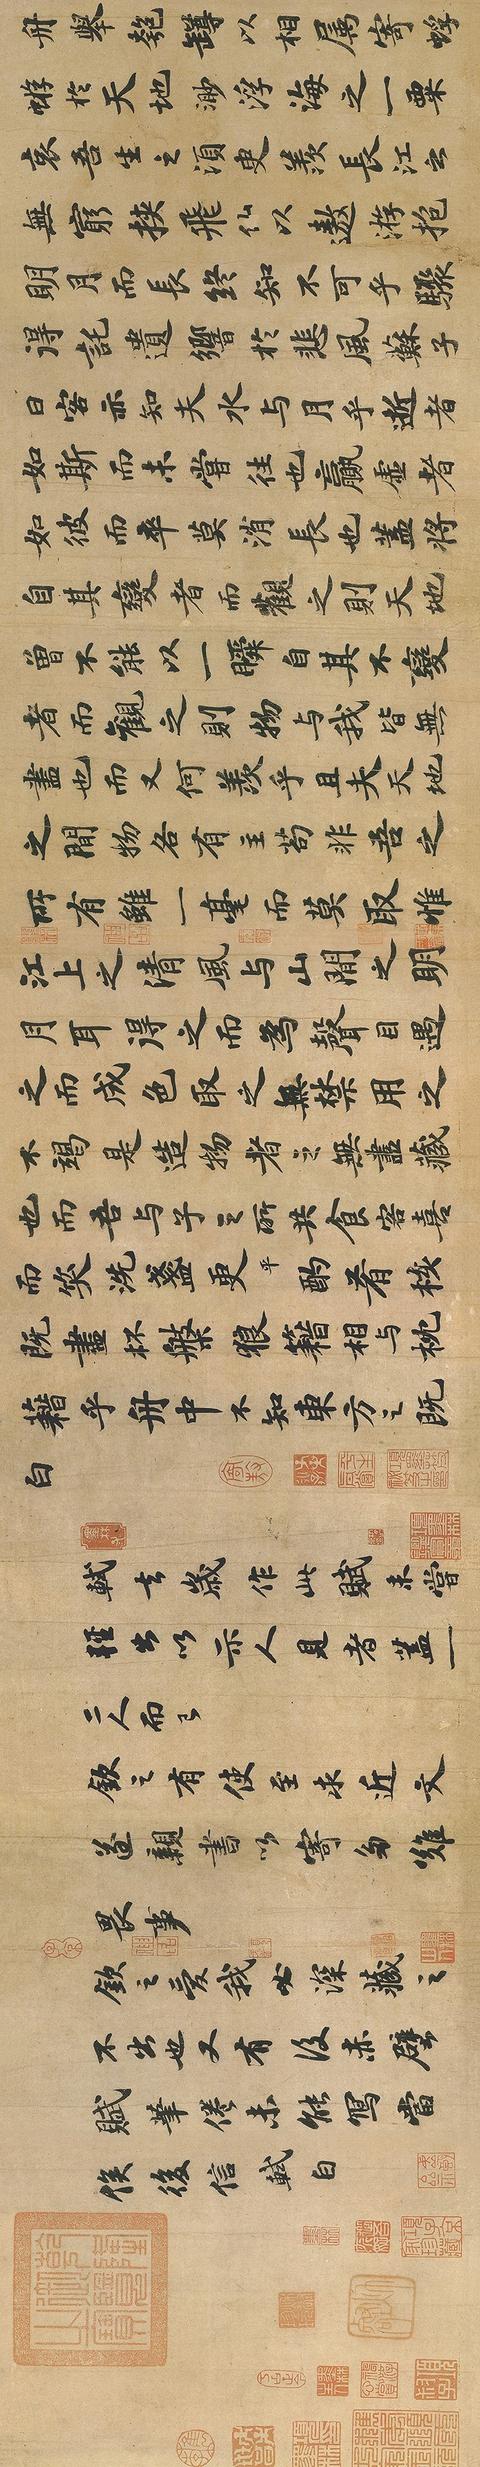 舟舉匏罇以相屬寄蜉
蝣於天地渺浮海之一粟
哀吾生之須臾羨長江之
無窮挾飛仙以遨游抱
明月而長終知不可乎驟
得託遺響於悲風蘇子
曰客亦知夫水与月乎逝者
如斯而未嘗往也贏虛者
如彼而卒莫消長也蓋將
自其變者而觀之則天地
曾不能以一瞬自其不變
者而觀之則物与我皆無
盡也而又何羨乎且夫天地
之間物各有主苟非吾之
所有雖一毫而莫取惟
江上之清風与山間之明
月耳得之而為聲目遇
之而成色取之無禁用之
不竭是造物者之無盡藏
也而吾与子之所共食客喜
而笑洗盞更平酌肴核
既盡杯盤狼籍相与枕
藉乎舟中不知東方之既
白
軾去歲作此賦未嘗
輕出以示人見者蓋一
二人而已
欽之有使至求近文
遂親書以寄多難
畏事
欽之愛我必深藏之
不出也又有後赤壁
賦筆倦未能寫當
俟後信軾白